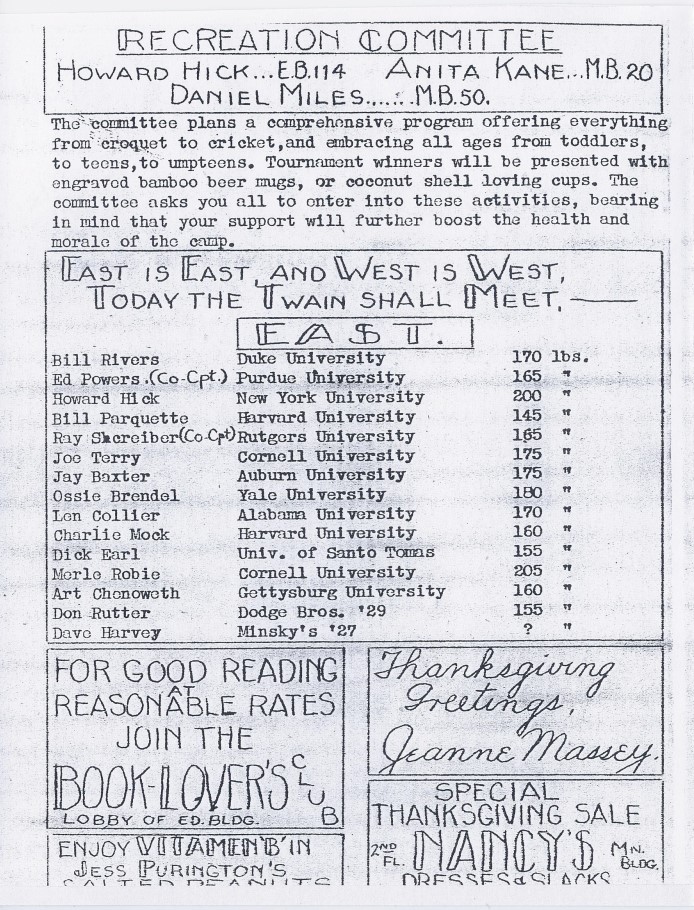 RECREATION COMMITTEE
HOWARD HICK...E.B.114 ANITA KANE...M.B. 20
DANIEL MILES......M.B.50.
The committee plans a comprehensive program offering everything
from croquet to cricket,and embracing all ages from toddlers,
to teens,to umpteens. Tournament winners will be presented with
engraved bamboo beer mugs, or coconut shell loving cups. The
committee asks you all to enter into these activities, bearing
in mind that your support will further boost the health and
morale of the camp.
EAST IS EAST, AND WEST IS WEST,
TODAY THE TWAIN SHALL MEET,
EAST.
Bill Rivers Duke University 170 lbs.
Ed Powers.(Co-Cpt.) Purdue University 165 "
Howard Hick New York University 200 "
Bill Parquette Harvard University 145 "
Ray Skereiber(Co-Cpt) Rutgers University 165 "
Joe Terry Cornell University 175 "
Jay Baxter Auburn University 175 "
Ossie Brendel Yale University 180 "
Len Collier Alabama University 170 "
Charlie Mock Harvard University 160 "
Dick Earl Univ. of Santo Tomas 155 "
Merle Robie Cornell University 205 "
Art Chenoweth Gettysburg University 160 "
Don Rutter Dodge Bros. '29 155 "
Dave Harvey Minsky's '27 ? "
FOR GOOD READING
AT
REASONABLE RATES
JOIN THE
BOOK-LOVER'S CLUB
LOBBY OF ED. BLDG.
Thanksgiving
Greetings.
Jeanne Massey.
SPECIAL
THANKSGIVING SALE
2ND FL. NANCY'S MN. BLDG.
DRESSES & SLACKS
ENJOY VITAMEN'B'IN
JESS PURINGTON'S
SALTED PEANUTS